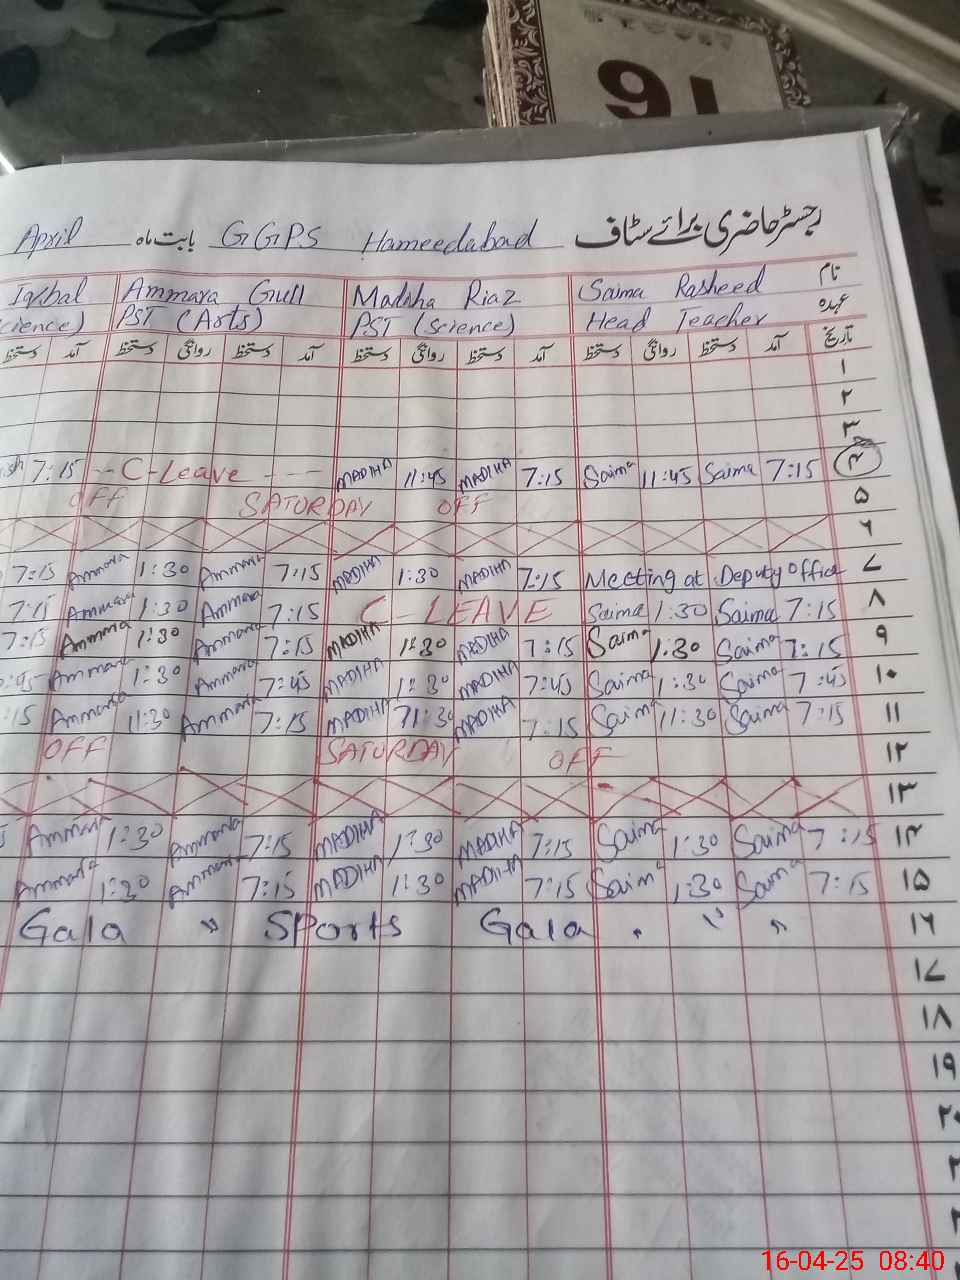 رجسٹر حاضری برائے سٹاف GGPS Hameedabad بابت ماہ April
نام Saima Rasheed Madiha Riaz Ammara Gull Iqbal
عہدہ Head Teacher PST (Science) PST (Arts) cience)
تاریخ آمد دستخط روانگی دستخط آمد دستخط روانگی دستخط آمد دستخط روانگی دستخط آمد دستخط
۱
۲
۳
۴ 7:15 Saima 11:45 Saima 7:15 MADIHA 11:45 MADIHA C-Leave 7:15
۵ OFF SATURDAY OFF
۶
۷ Meeting at Deputy Office 7:15 MADIHA 1:30 MADIHA 7:15 Ammara 1:30 Ammara 7:15
۸ 7:15 Saima 1:30 Saima C-LEAVE 7:15 Ammara 1:30 Ammara 7:15
۹ 7:15 Saima 1:30 Saima 7:15 MADIHA 1:30 MADIHA 7:15 Ammara 1:30 Ammara 7:15
۱۰ 7:45 Saima 1:30 Saima 7:45 MADIHA 1:30 MADIHA 7:45 Ammara 1:30 Ammara :45
۱۱ 7:15 Saima 11:30 Saima 7:15 MADIHA 11:30 MADIHA 7:15 Ammara 11:30 Ammara :15
۱۲ OFF SATURDAY OFF
۱۳
۱۴ 7:15 Saima 1:30 Saima 7:15 MADIHA 1:30 MADIHA 7:15 Ammara 1:30 Ammara
۱۵ 7:15 Saima 1:30 Saima 7:15 MADIHA 1:30 MADIHA 7:15 Ammara 1:30 Ammara
۱۶ Gala " Sports Gala " " "
۱۷
۱۸
۱۹
۲۰
16-04-25 08:40